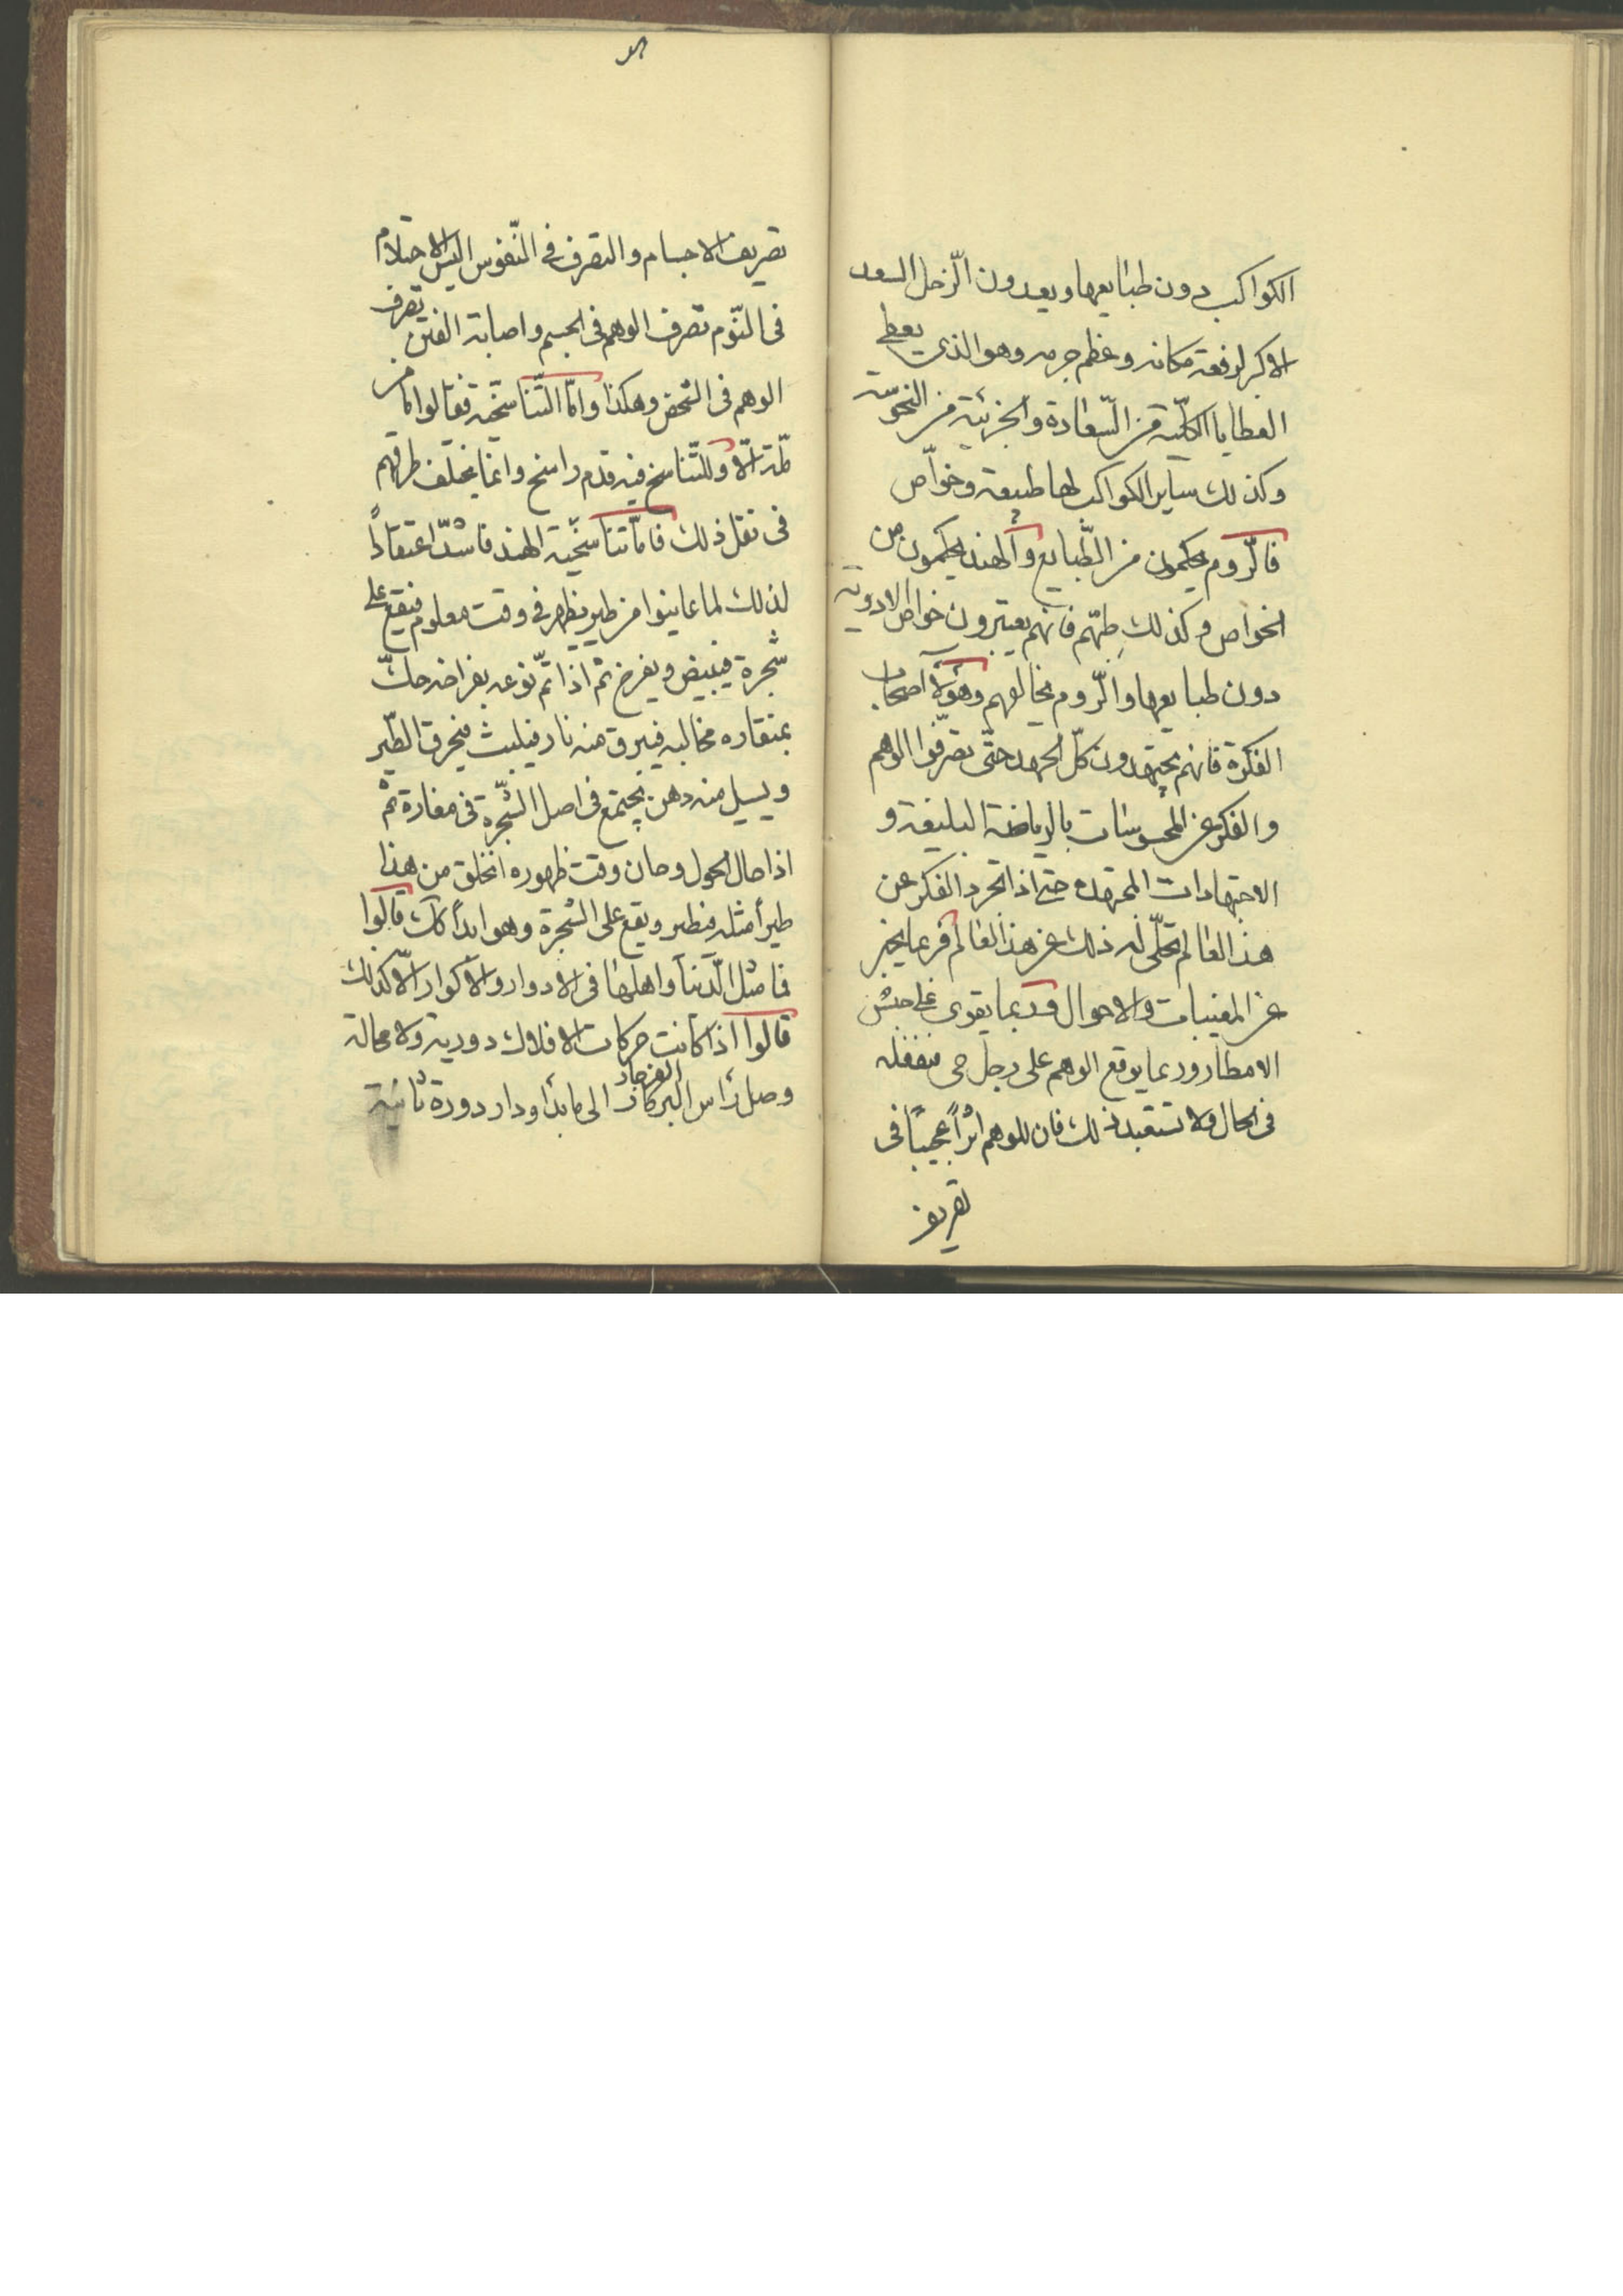 الكواكب دون طبايعها ويعدون الزّحل السعد
الاكبر لرفعة مكانه وعظم جرمه وهو الذى يعطى
العطايا الكلّية من السّعادة والجزئية من النحوسة
وكذلك ساير الكواكب لها طبيعة وخواّص
فالرّوم يحكمون من الطّبايع والهند يحكمون من
الخواص وكذلك طبّهم فانهم يعتبرون خواص الادوية
دون طبايعها والرّوم يخالفهم وهؤلاء اصحاب
الفكرة فانهم يجتهدون كلّ الجهد حتّى يصرّفوا الوهم
والفكر عن المحسوسات بالرياضة البليغة و
الاجتهادات المجهدة حتى اذا تجرد الفكر عن
هذا العالم تجلّى له ذلك عن هذا العالم فربما يخبر
عن المغيبات والاحوال وربما يقوى على حبس
الامطار وربما يوقع الوهم على رجل حى فيقتله
فى الحال ولا تستبعد ذلك فان للوهم اثراً عجيباً فى
تصريف
تصريف الاجسام والتصرف فى النّفوس اليس الاحتلام
فى النّوم تصرف الوهم فى الجسم واصابة العين تصرف
الوهم فى الشخص وهكذا وامّا التّناسخيّة فقالوا ما من
ملّة الّا وللتّناسخ فيه قدم راسخ وانما يختلف طرقهم
فى نقل ذلك فامّا تناسخيّة الهند فاشدّ اعتقاداً
لذلك لما عاينوا من طير يظهر فى وقت معلوم فيقع على
شجرة فيبيض ويفرخ ثم اذا تمّ نوعه بفراخه حكّ
بمنقاره مخالبه فيبرق منه نار فيلتهب فيحرق الطّير
ويسيل منه دهن يجتمع فى اصل الشّجرة فى مغارة ثم
اذا حال الحول وحان وقت ظهوره انخلق من هذا
طيراً مثله فيطير ويقع على الشجرة وهو ابداً كك قالوا
فما مثل الدّنيا واهلها فى الادوار والاكوار الّا كذلك
قالوا اذا كانت حركات الافلاك دورية ولا محالة
الفرجار
وصل رأس البركار الى ما بدأ ودار دورة ثانية